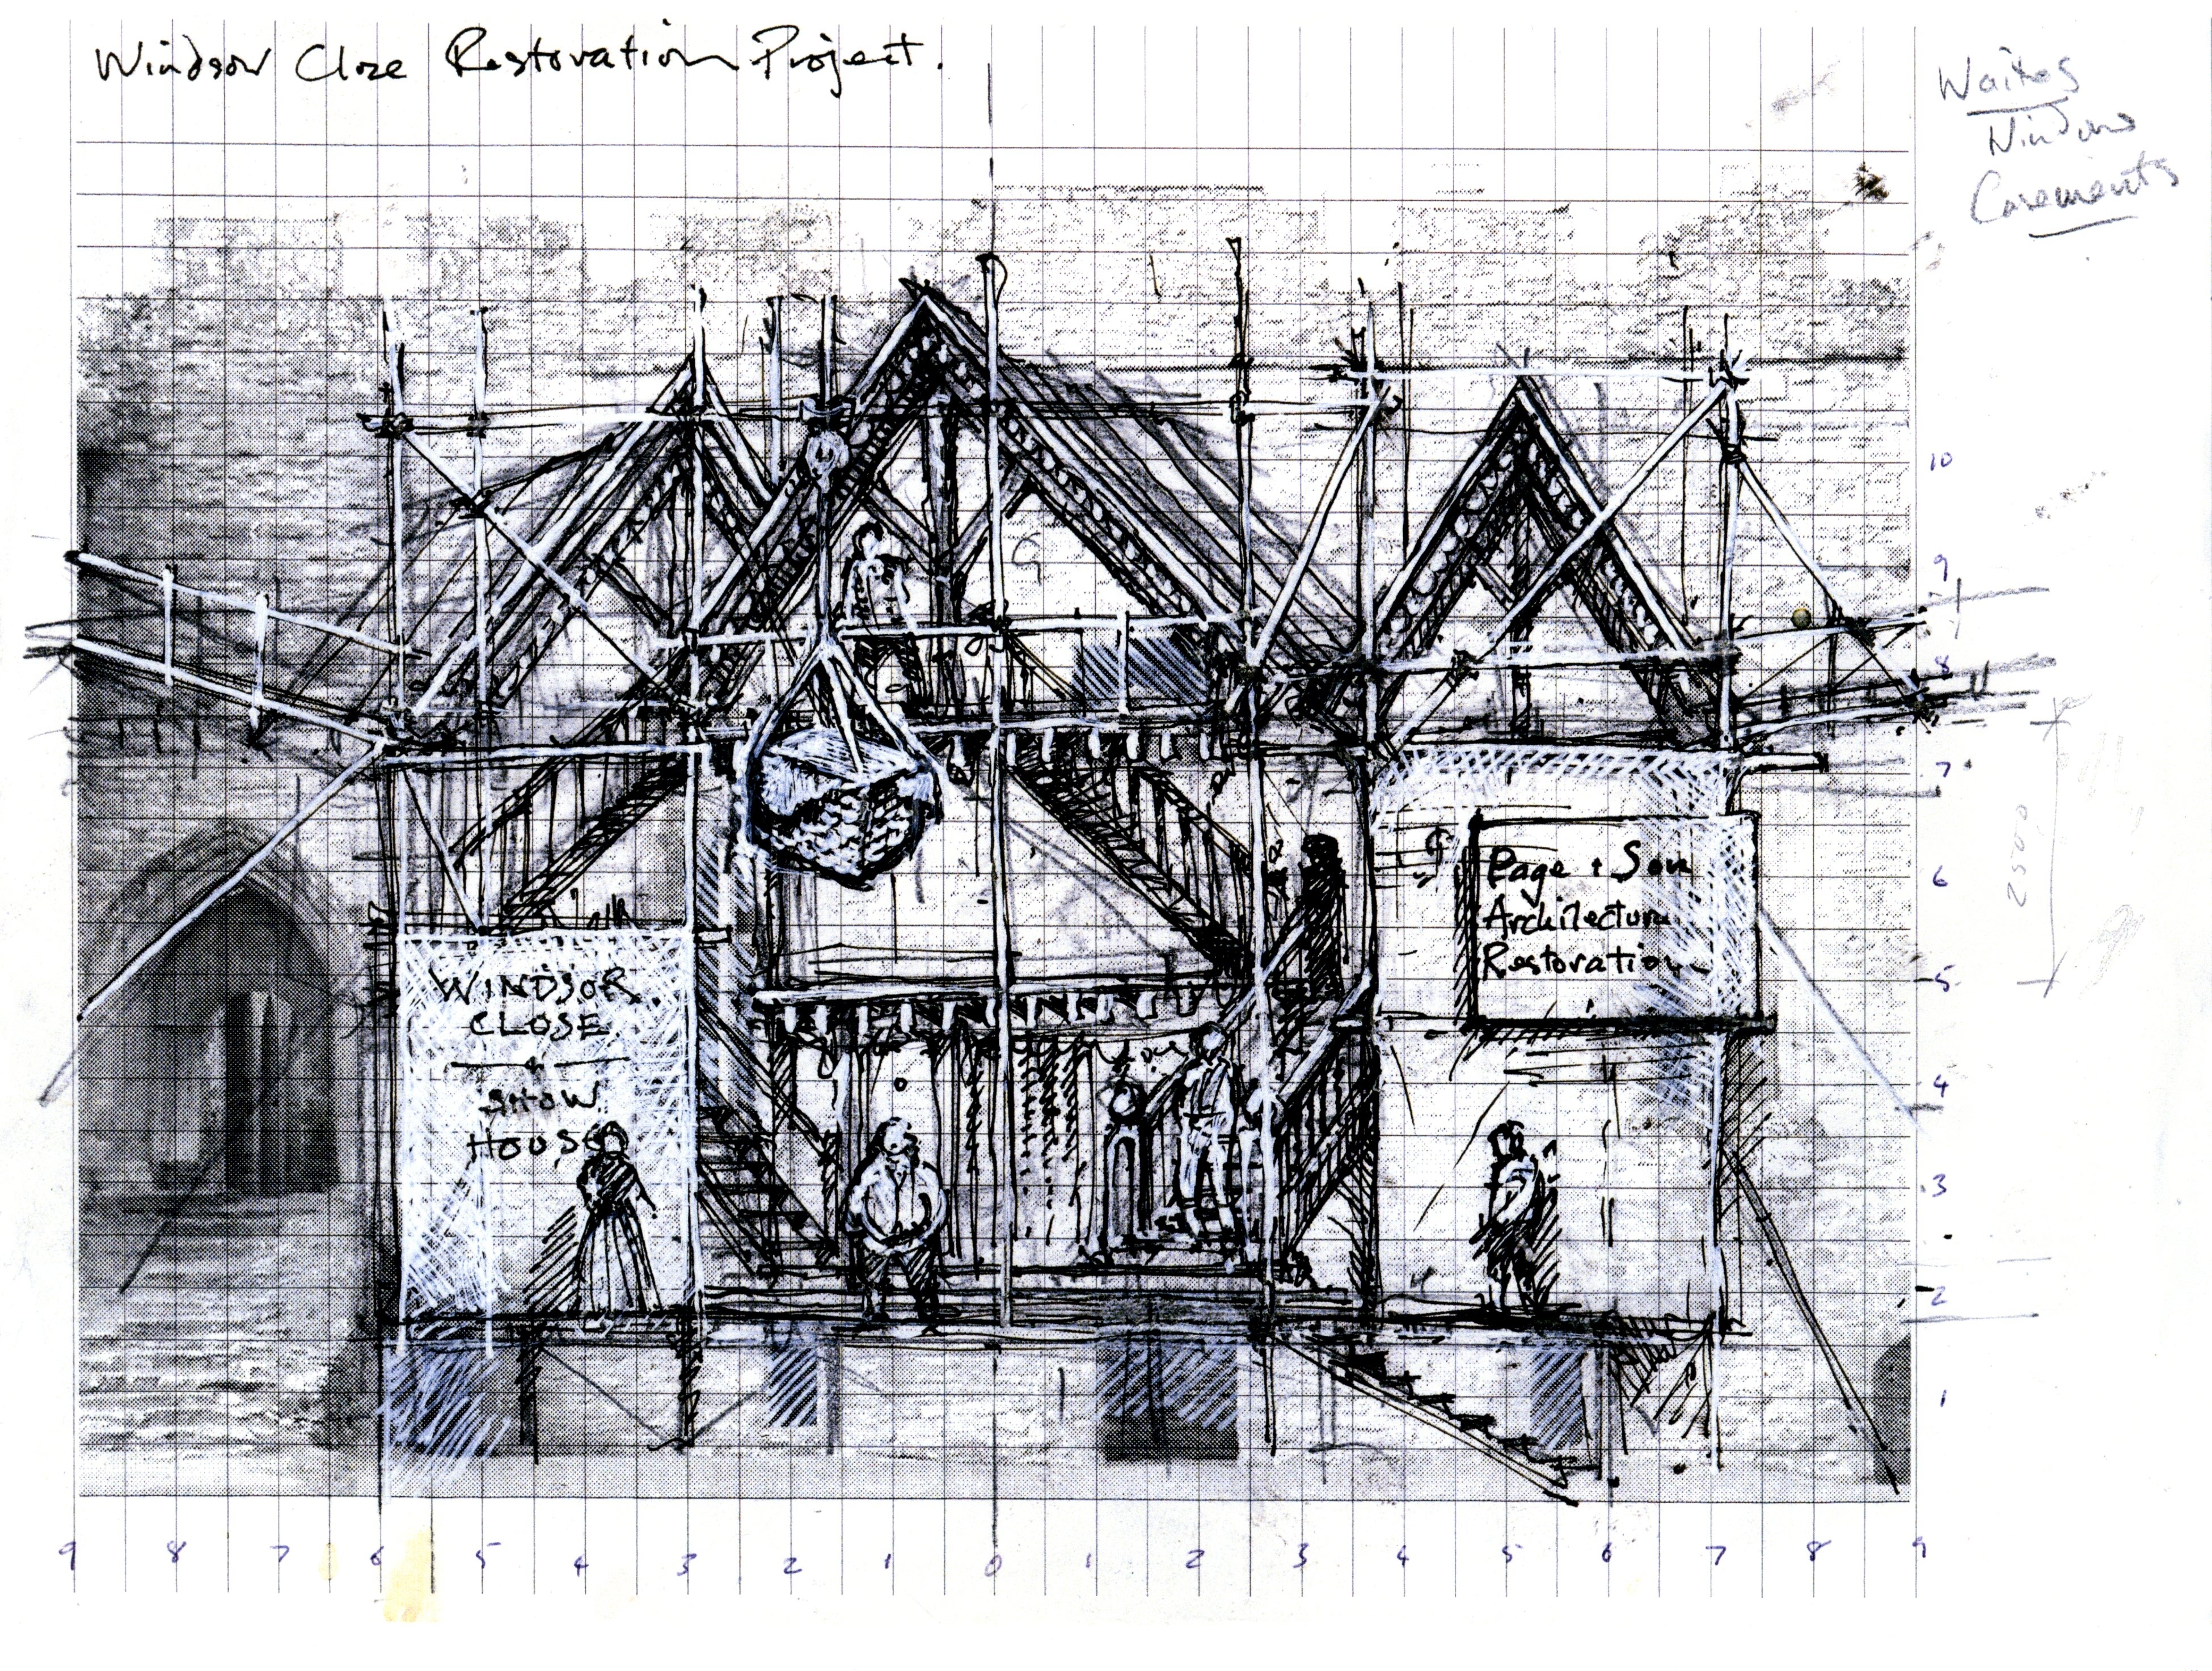 Windsor Close Restoration Project.
Waites
Window
Casements
WINDSOR
CLOSE
SHOW
HOUSE
Page + Son
Architectural
Restoration
10
9
8
7
6
5
4
3
2
1
2500
9 8 7 6 5 4 3 2 1 0 1 2 3 4 5 6 7 8 9